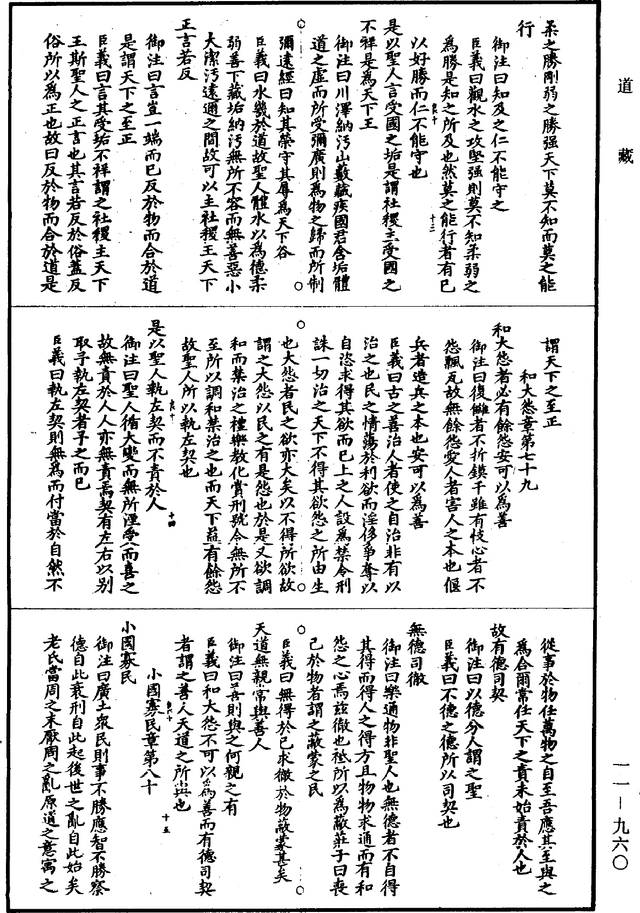 道藏
柔之勝剛弱之勝强天下莫不知而莫之能
行
御注曰知及之仁不能守之
臣義曰觀水之攻堅强則莫不知柔弱之
爲勝是知之所及也然莫之能行者有已
以好勝而仁不能守也
是以聖人言受國之垢是謂社稷主受國之
不祥是爲天下王
御注曰川澤納污山藪藏疾國君含垢體
道之虛而所受彌廣則爲物之歸而所制
彌遠經曰知其榮守其辱爲天下谷
臣義曰水幾於道故聖人體水以爲德柔
弱善下藏垢納污無所不容而無善惡小
大潔污遠邇之間故可以主社稷王天下
正言若反
御注曰言豈一端而已反於物而合於道
是謂天下之至正
臣義曰言其受垢不祥謂之社稷主天下
王斯聖人之正言也其言若反於俗蓋反
俗所以爲正也故曰反於物而合於道是
謂天下之至正
和大怨章第七十九
和大怨者必有餘怨安可以爲善
御注曰復讎者不折鏌干雖有忮心者不
怨飄瓦故無餘怨愛人者害人之本也偃
兵者造兵之本也安可以爲善
臣義曰古之善治人者使之自治非有以
治之也民之情蕩於利欲而淫侈爭奪以
自恣求得其欲而已上之人設爲禁令刑
誅一切治之天下不得其欲怨之所由生
也大怨者民之欲亦大矣以不得所欲故
謂之大怨以民之有是怨也於是又欲調
和而禁治之禮樂教化賞刑號令無所不
至所以調和禁治之也而天下益有餘怨
故聖人所以執左契也
是以聖人執左契而不責於人
十四
御注曰聖人循大變而無所湮受而喜之
故無責於人人亦無責焉契有左右以別
取予執左契者予之而已
臣義曰執左契則無爲而付當於自然不
從事於物任萬物之自至吾應其至與之
爲合爾常任天下之責未始責於人也
故有德司契
御注曰以德分人謂之聖
臣義曰不德之德所以司契也
無德司徹
御注曰樂通物非聖人也無德者不自得
其得而得人之得方且物物求通而有和
怨之心焉茲徹也秪所以爲蔽莊子曰喪
己於物者謂之蔽蒙之民
臣義曰無得於己求徹於物蔽蒙甚矣
天道無親常與善人
御注曰善則與之何親之有
臣義曰和大怨不可以爲善而有德司契
者謂之善人天道之所與也
十五
小國寡民章第八十
小國寡民
御注曰廣土衆民則事不勝應智不勝察
德自此衰刑自此起後世之亂自此始矣
老氏當周之末厭周之亂原道之意寓之
一一—九六〇